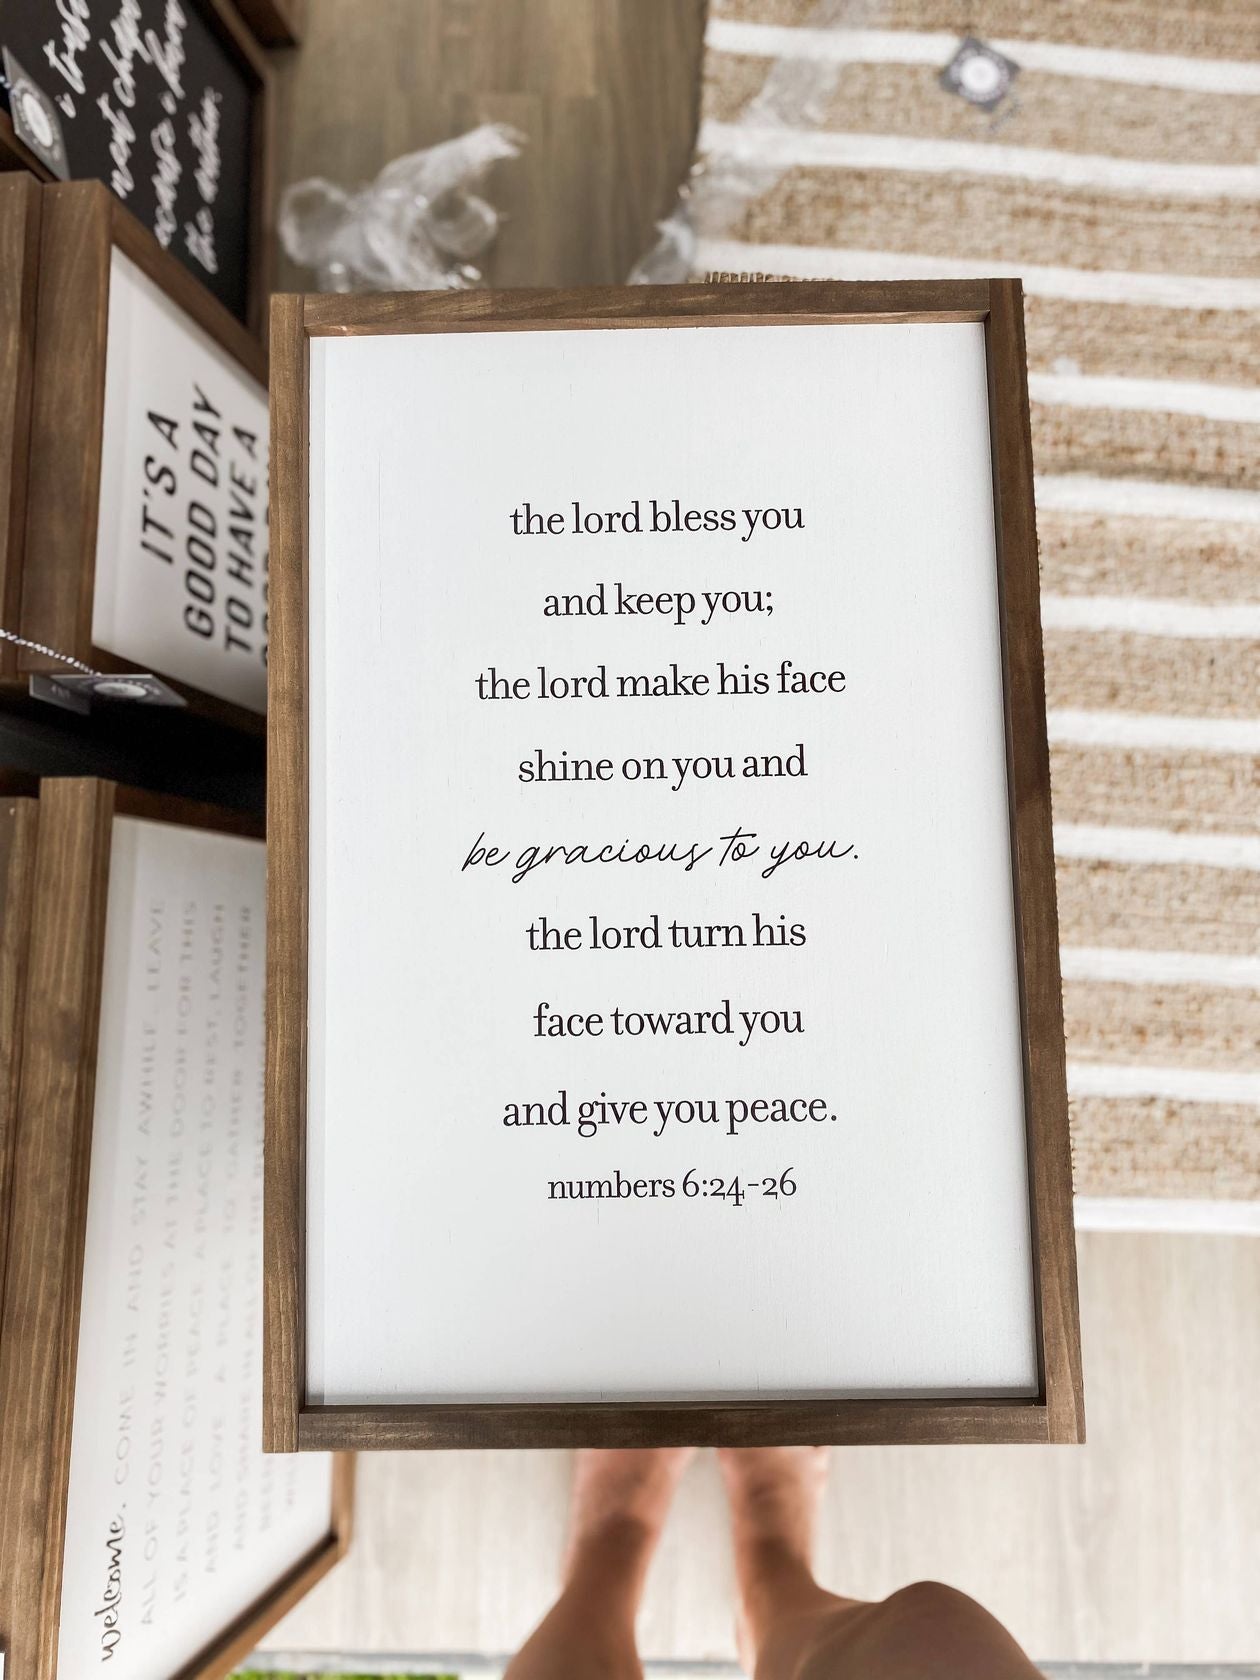 the lord bless you
and keep you;
the lord make his face
shine on you and
be gracious to you.
the lord turn his
face toward you
and give you peace.
numbers 6:24-26
IT'S A
GOOD DAY
TO HAVE A
welcome. COME IN AND STAY AWHILE. LEAVE
ALL OF YOUR WORRIES AT THE DOOR FOR THIS
IS A PLACE OF PEACE. A PLACE TO REST, LAUGH
AND LOVE. A PLACE TO GATHER TOGETHER
AND SHARE IN ALL OF
i trust
next chapter
the author.